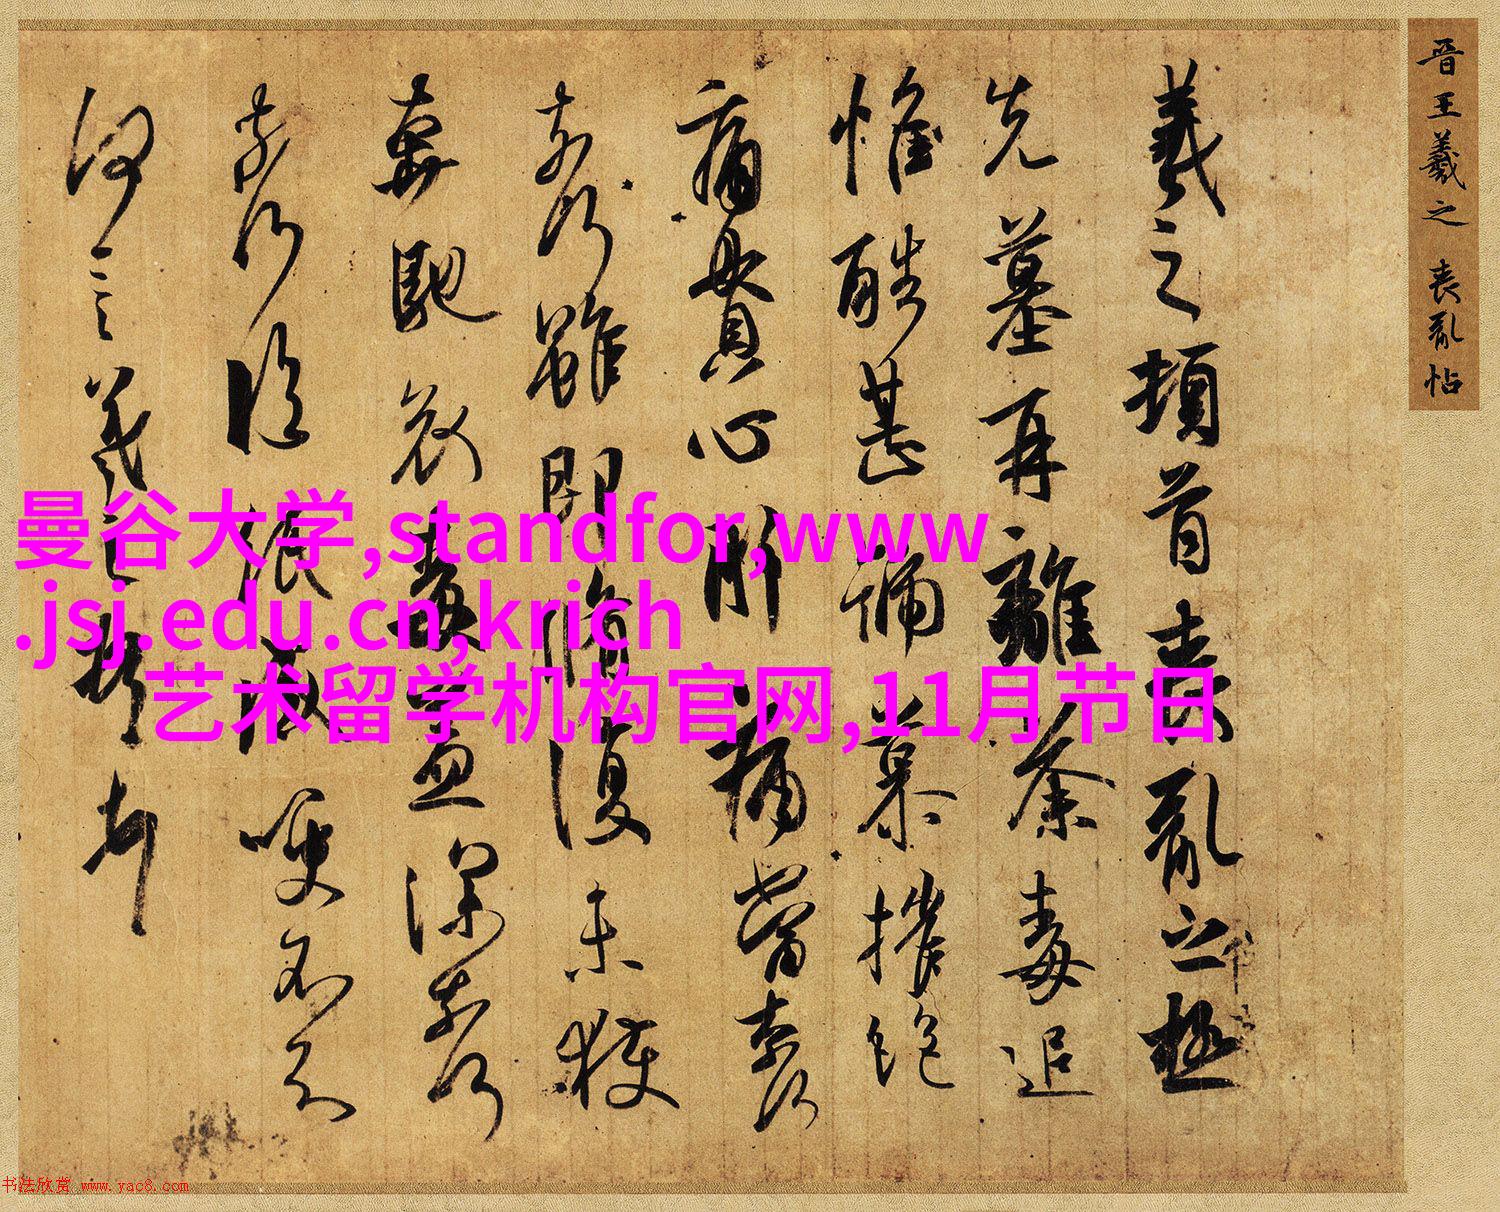 晋王羲之 喪亂帖
羲之頓首喪亂之極
先墓再離荼毒追
惟酷甚號慕摧絕
痛貫心肝痛當柰何
柰何雖即脩復未獲
奔馳哀毒益深柰何
柰何臨紙感哽不知
何言羲之頓首頓首
曼谷大学,standfor,www
.jsj.edu.cn,krich
艺术留学机构官网,11月节日
书法欣赏 www.yac8.com